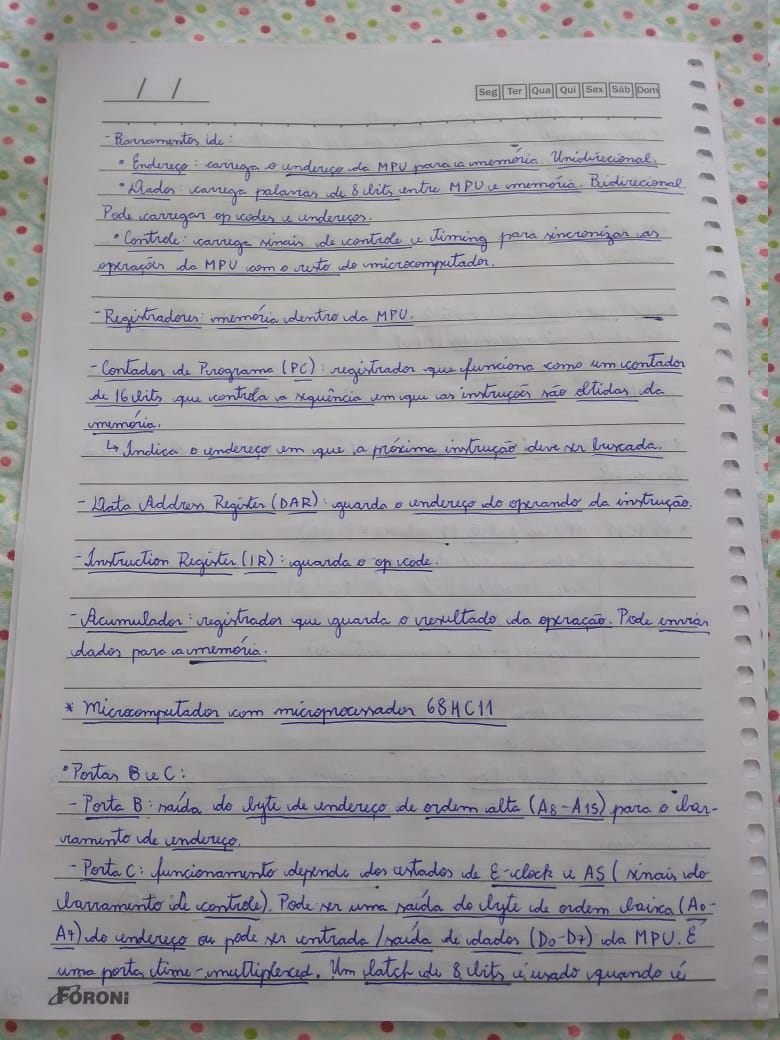 / /
Seg Ter Qua Qui Sex Sáb Dom
- Barramentos de:
• Endereço: carrega o endereço da MPU para a memória. Unidirecional.
• Dados: carrega palavras de 8 bits entre MPU e memória. Bidirecional.
Pode carregar op codes e endereços.
• Controle: carrega sinais de controle e timing para sincronizar as
operações da MPU com o resto do microcomputador.
- Registradores: memória dentro da MPU.
- Contador de Programa (PC): registrador que funciona como um contador
de 16 bits que controla a sequência em que as instruções são obtidas da
memória.
↳ Indica o endereço em que a próxima instrução deve ser buscada.
- Data Address Register (DAR): guarda o endereço do operando da instrução.
- Instruction Register (IR): guarda o op code.
- Acumulador: registrador que guarda o resultado da operação. Pode enviar
dados para a memória.
* Microcomputador com microprocessador 68HC11
• Portas B e C:
- Porta B: saída do byte de endereço de ordem alta (A8-A15) para o bar-
ramento de endereço.
- Porta C: funcionamento depende dos estados de E-clock e AS (sinais do
barramento de controle). Pode ser uma saída do byte de ordem baixa (A0-
A7) do endereço ou pode ser entrada/saída de dados (D0-D7) da MPU. É
uma porta time-multiplexed. Um latch de 8 bits é usado quando é
FORONI